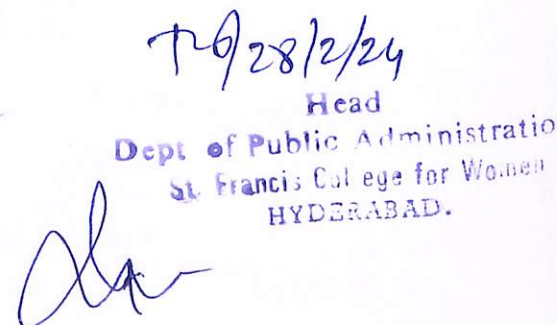 28/2/24
Head
Dept of Public Administratio
St. Francis Col ege for Women
HYDERABAD.